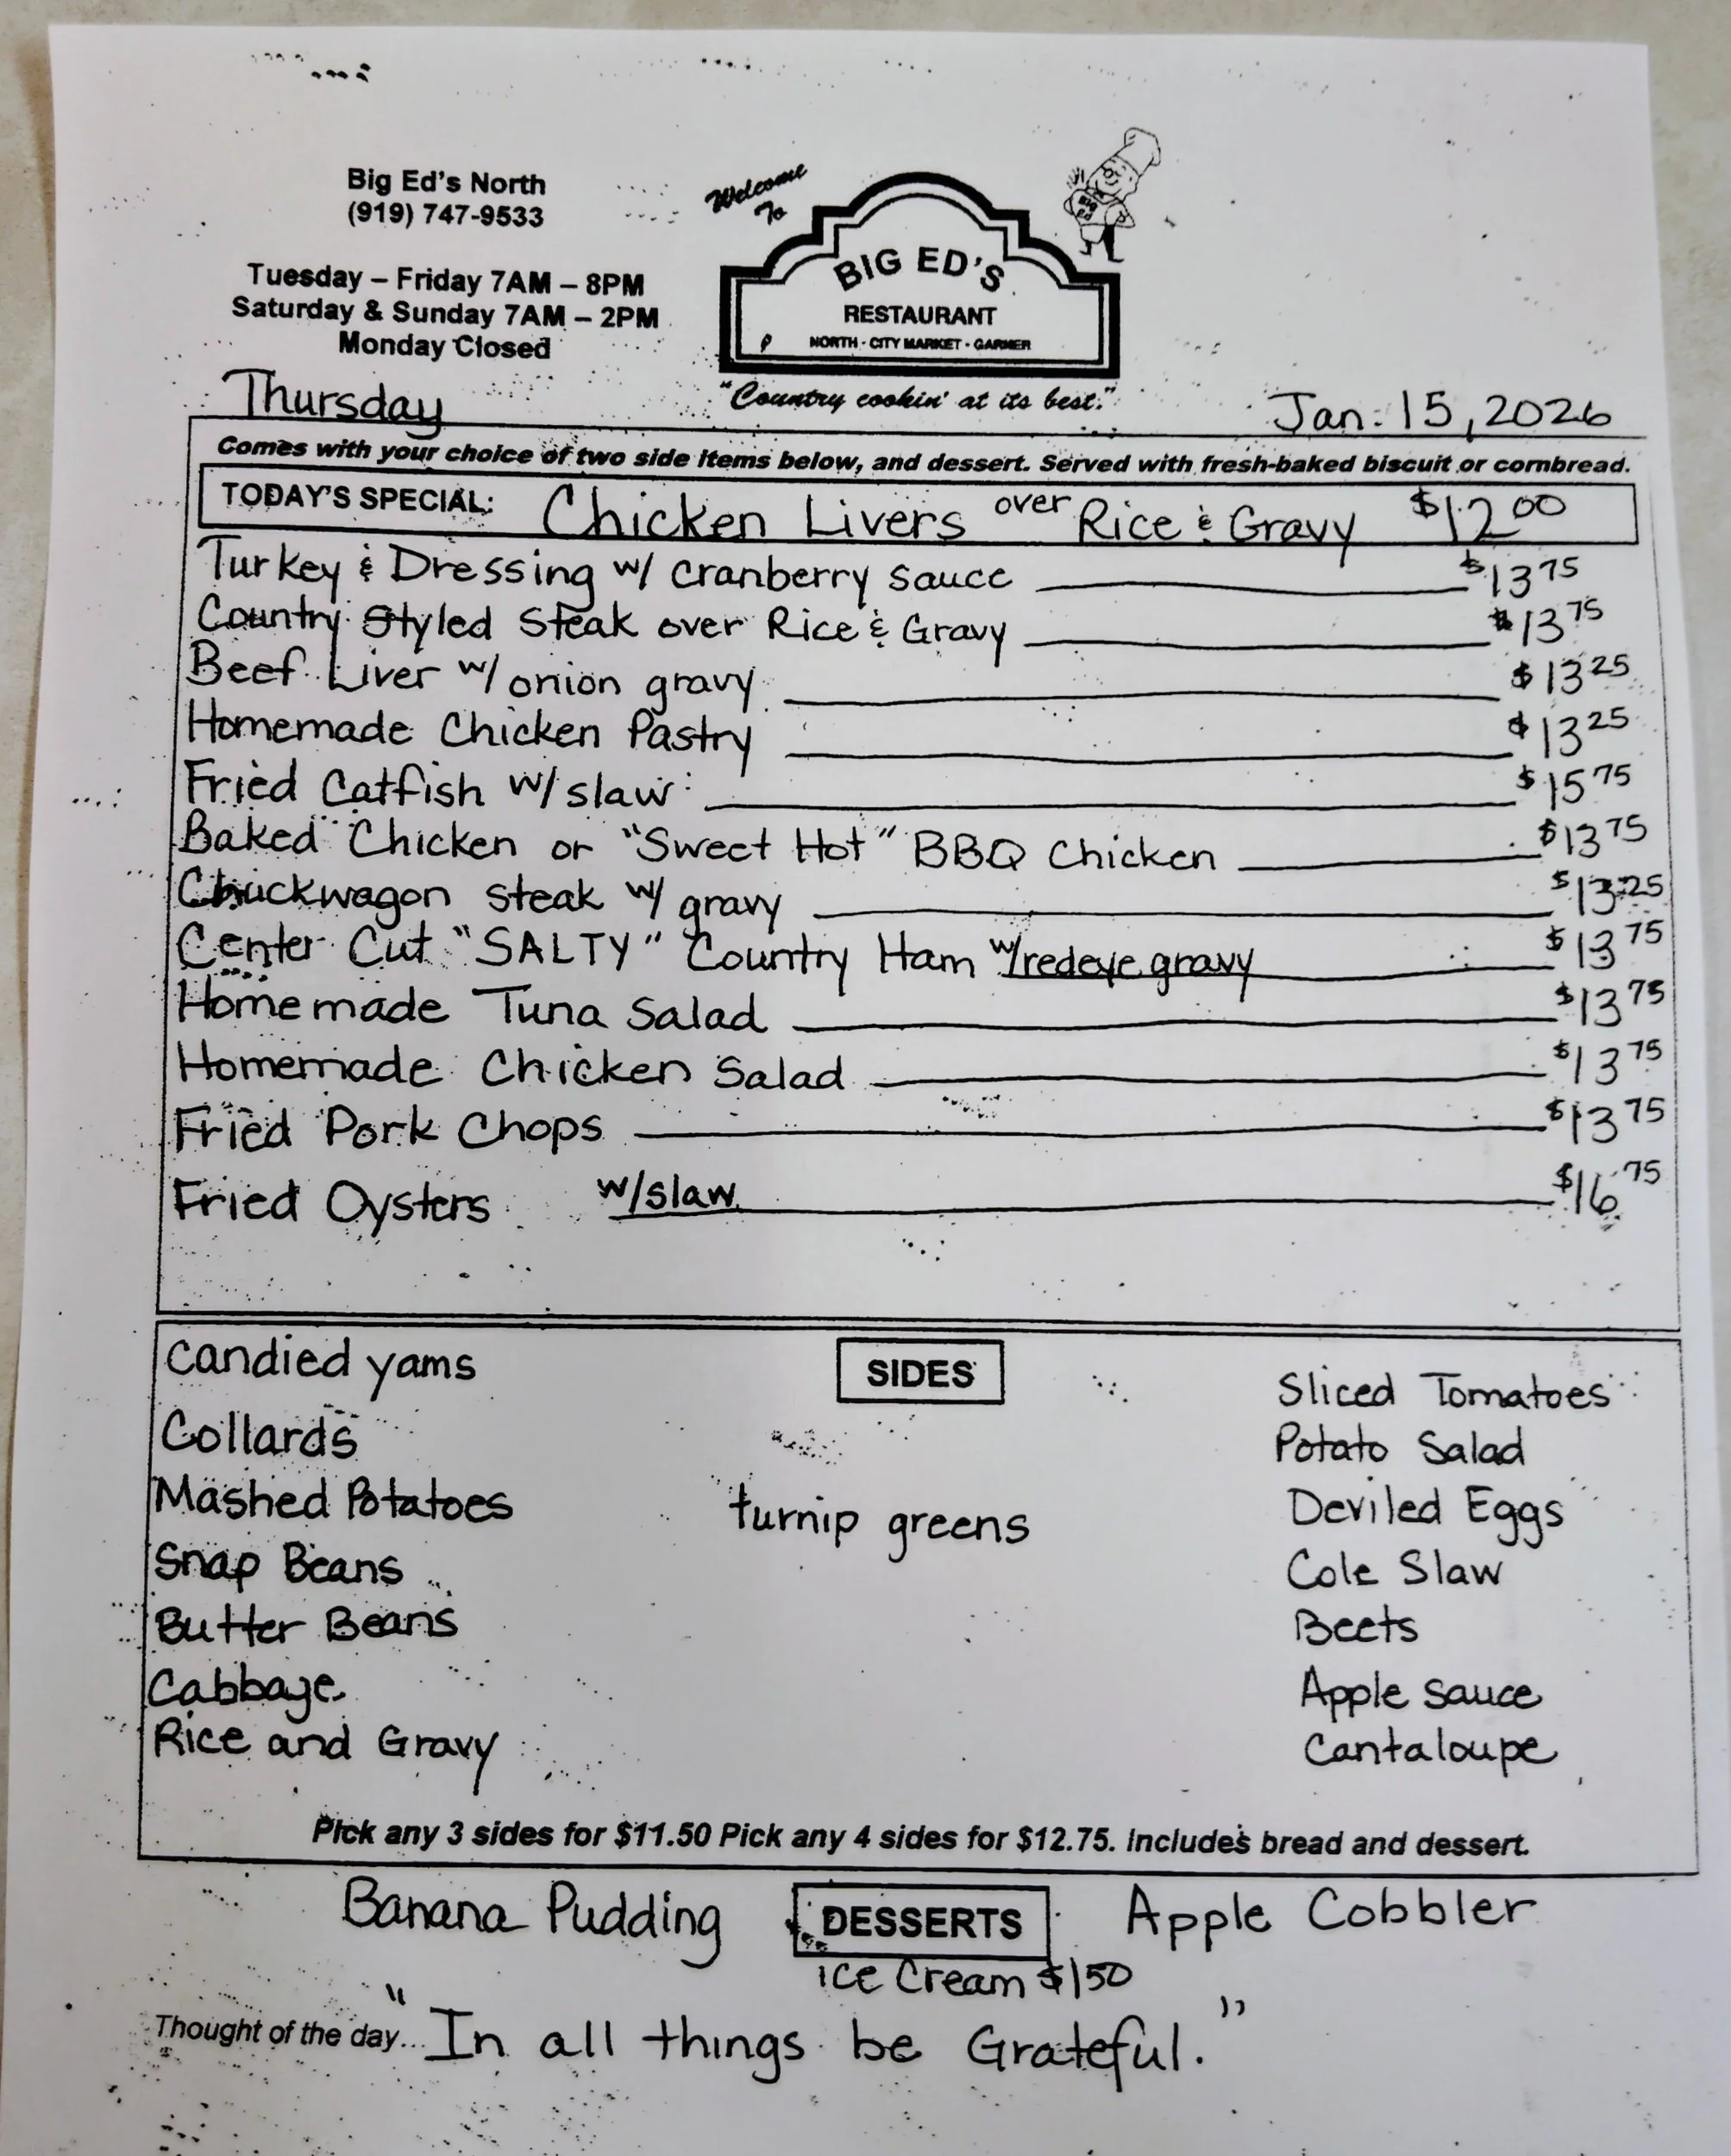 Big Ed's North
(919) 747-9533
Tuesday – Friday 7AM – 8PM
Saturday & Sunday 7AM – 2PM
Monday Closed
Welcome
To
BIG ED'S
RESTAURANT
NORTH - CITY MARKET - GARNER
"Country cookin' at its best."
BIG
ED
Thursday Jan. 15, 2026
Comes with your choice of two side items below, and dessert. Served with fresh-baked biscuit or cornbread.
TODAY'S SPECIAL: Chicken Livers over Rice & Gravy $12 00
Turkey & Dressing w/ cranberry sauce $13 75
Country Styled Steak over Rice & Gravy $13 75
Beef Liver w/ onion gravy $13 25
Homemade Chicken Pastry $13 25
Fried Catfish w/ slaw $15 75
Baked Chicken or "Sweet Hot" BBQ Chicken $13 75
Chuckwagon steak w/ gravy $13 25
Center Cut "SALTY" Country Ham w/redeye gravy $13 75
Homemade Tuna Salad $13 75
Homemade Chicken Salad $13 75
Fried Pork Chops $13 75
Fried Oysters w/slaw $16 75
SIDES
Candied yams
Collards
Mashed Potatoes
Snap Beans
Butter Beans
Cabbage
Rice and Gravy
turnip greens
Sliced Tomatoes
Potato Salad
Deviled Eggs
Cole Slaw
Beets
Apple sauce
Cantaloupe
Pick any 3 sides for $11.50 Pick any 4 sides for $12.75. Includes bread and dessert.
Banana Pudding DESSERTS Apple Cobbler
ice Cream $1 50
Thought of the day... "In all things be Grateful."